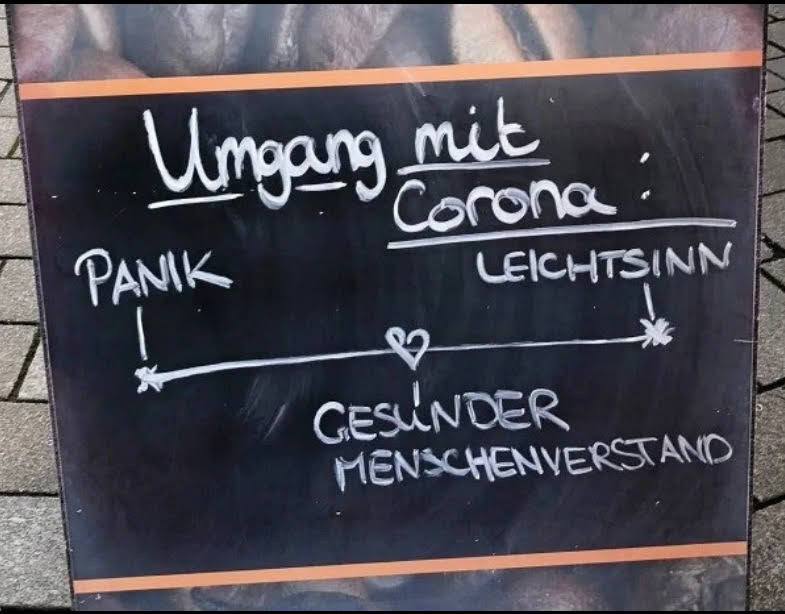 Umgang mit
Corona :
PANIK
LEICHTSINN
GESUNDER
MENSCHENVERSTAND